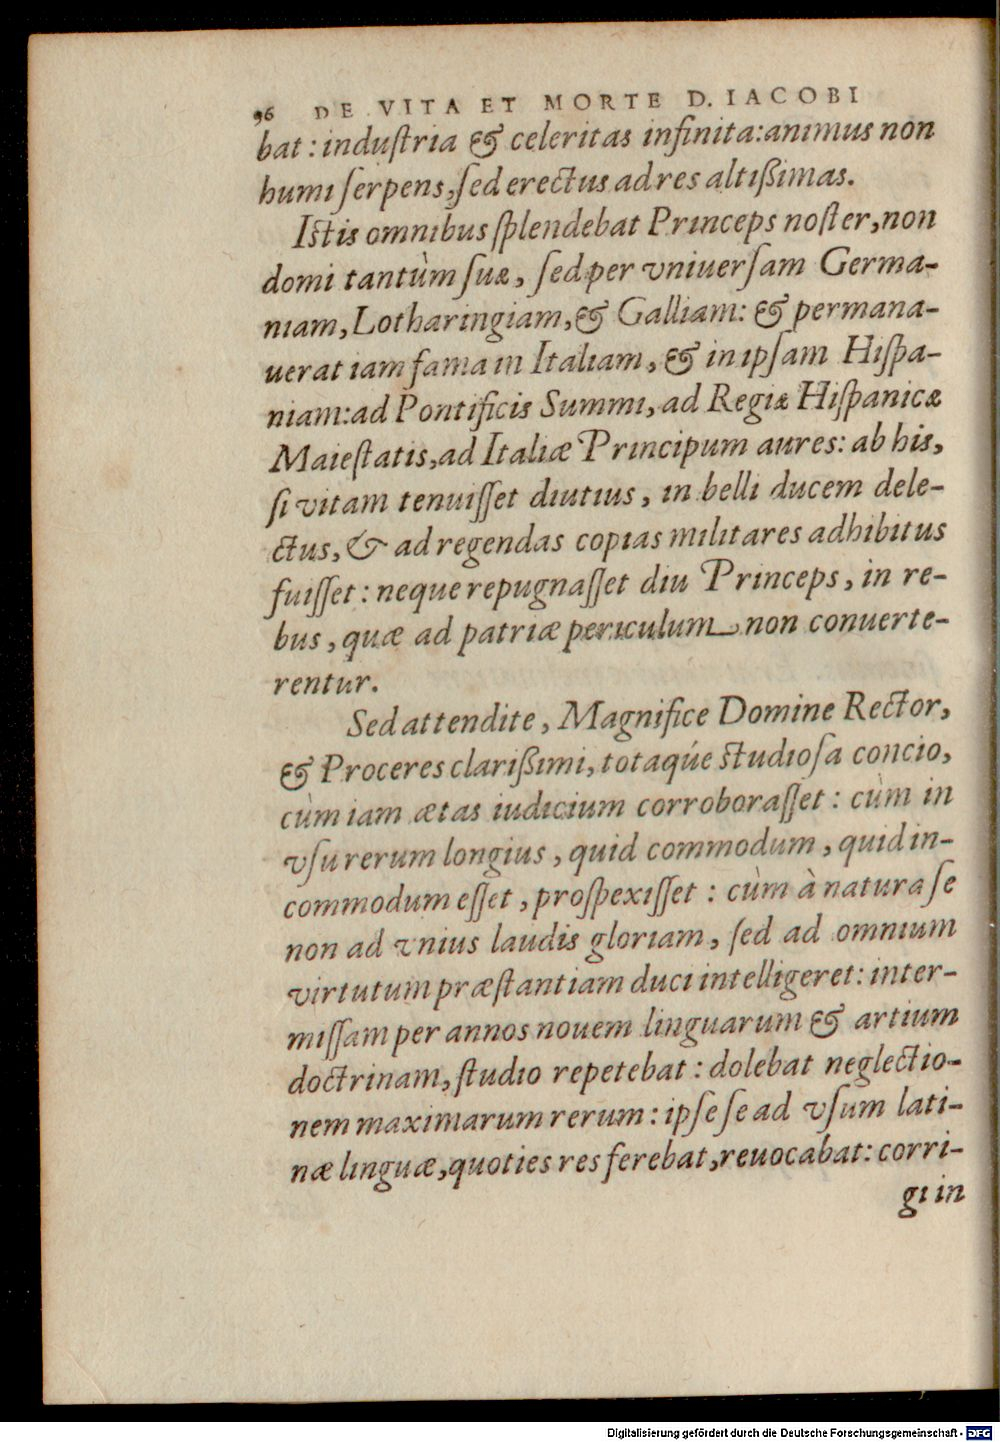 96 DE VITA ET MORTE D. IACOBI
bat: induſtria & celeritas infinita: animus non
humi ſerpens, ſed erectus ad res altißimas.
Iſtis omnibus ſplendebat Princeps noſter, non
domi tantùm ſuæ, ſed per vniuerſam Germa-
niam, Lotharingiam, & Galliam: & permana-
uerat iam fama in Italiam, & in ipſam Hiſpa-
niam: ad Pontificis Summi, ad Regiæ Hiſpanicæ
Maieſtatis, ad Italiæ Principum aures: ab his,
ſi vitam tenuiſſet diutius, in belli ducem dele-
ctus, & ad regendas copias militares adhibitus
fuiſſet: neque repugnaſſet diu Princeps, in re-
bus, quæ ad patriæ periculum non conuerte-
rentur.
Sed attendite, Magnifice Domine Rector,
& Proceres clarißimi, totaqúe ſtudioſa concio,
cùm iam ætas iudicium corroboraſſet: cùm in
vſu rerum longius, quid commodum, quid in-
commodum eſſet, proſpexiſſet: cùm à natura ſe
non ad vnius laudis gloriam, ſed ad omnium
virtutum præſtantiam duci intelligeret: inter-
miſſam per annos nouem linguarum & artium
doctrinam, ſtudio repetebat: dolebat neglectio-
nem maximarum rerum: ipſe ſe ad vſum lati-
næ linguæ, quoties res ferebat, reuocabat: corri-
gi in
Digitalisierung gefördert durch die Deutsche Forschungsgemeinschaft - DFG